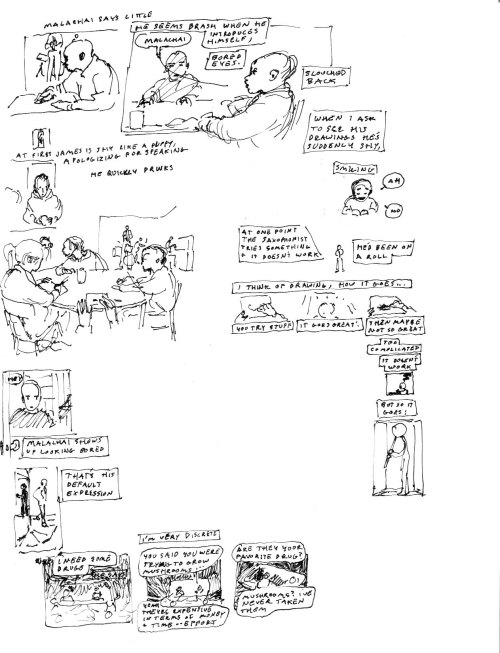 MALACHAI SAYS LITTLE
HE SEEMS BRASH WHEN HE
INTRODUCES
HIMSELF,
MALACHAI
BORED
EYES.
SLOUCHED
BACK
WHEN I ASK
TO SEE HIS
DRAWINGS HE'S
SUDDENLY SHY,
AT FIRST JAMES IS SHY LIKE A PUPPY,
APOLOGIZING FOR SPEAKING
HE QUICKLY DRINKS
SMILING
AH
NO
AT ONE POINT
THE SAXOPHONIST
TRIES SOMETHING
+ IT DOESN'T WORK
HE'D BEEN ON
A ROLL.
I THINK OF DRAWING, HOW IT GOES...
YOU TRY STUFF
IT GOES GREAT!
THEN MAYBE
NOT SO GREAT
TOO
COMPLICATED
IT DOESN'T
WORK
BUT SO IT
GOES!
HEY
MALACHAI SHOWS
UP LOOKING BORED
THAT'S HIS
DEFAULT
EXPRESSION
I NEED SOME
DRUGS
I'M VERY DISCRETE
YOU SAID YOU WERE
TRYING TO GROW
MUSHROOMS
YEAH
THEY'RE EXPENSIVE
IN TERMS OF MONEY
+ TIME -- EFFORT
ARE THEY YOUR
FAVORITE DRUG?
MUSHROOMS? I'VE
NEVER TAKEN
THEM